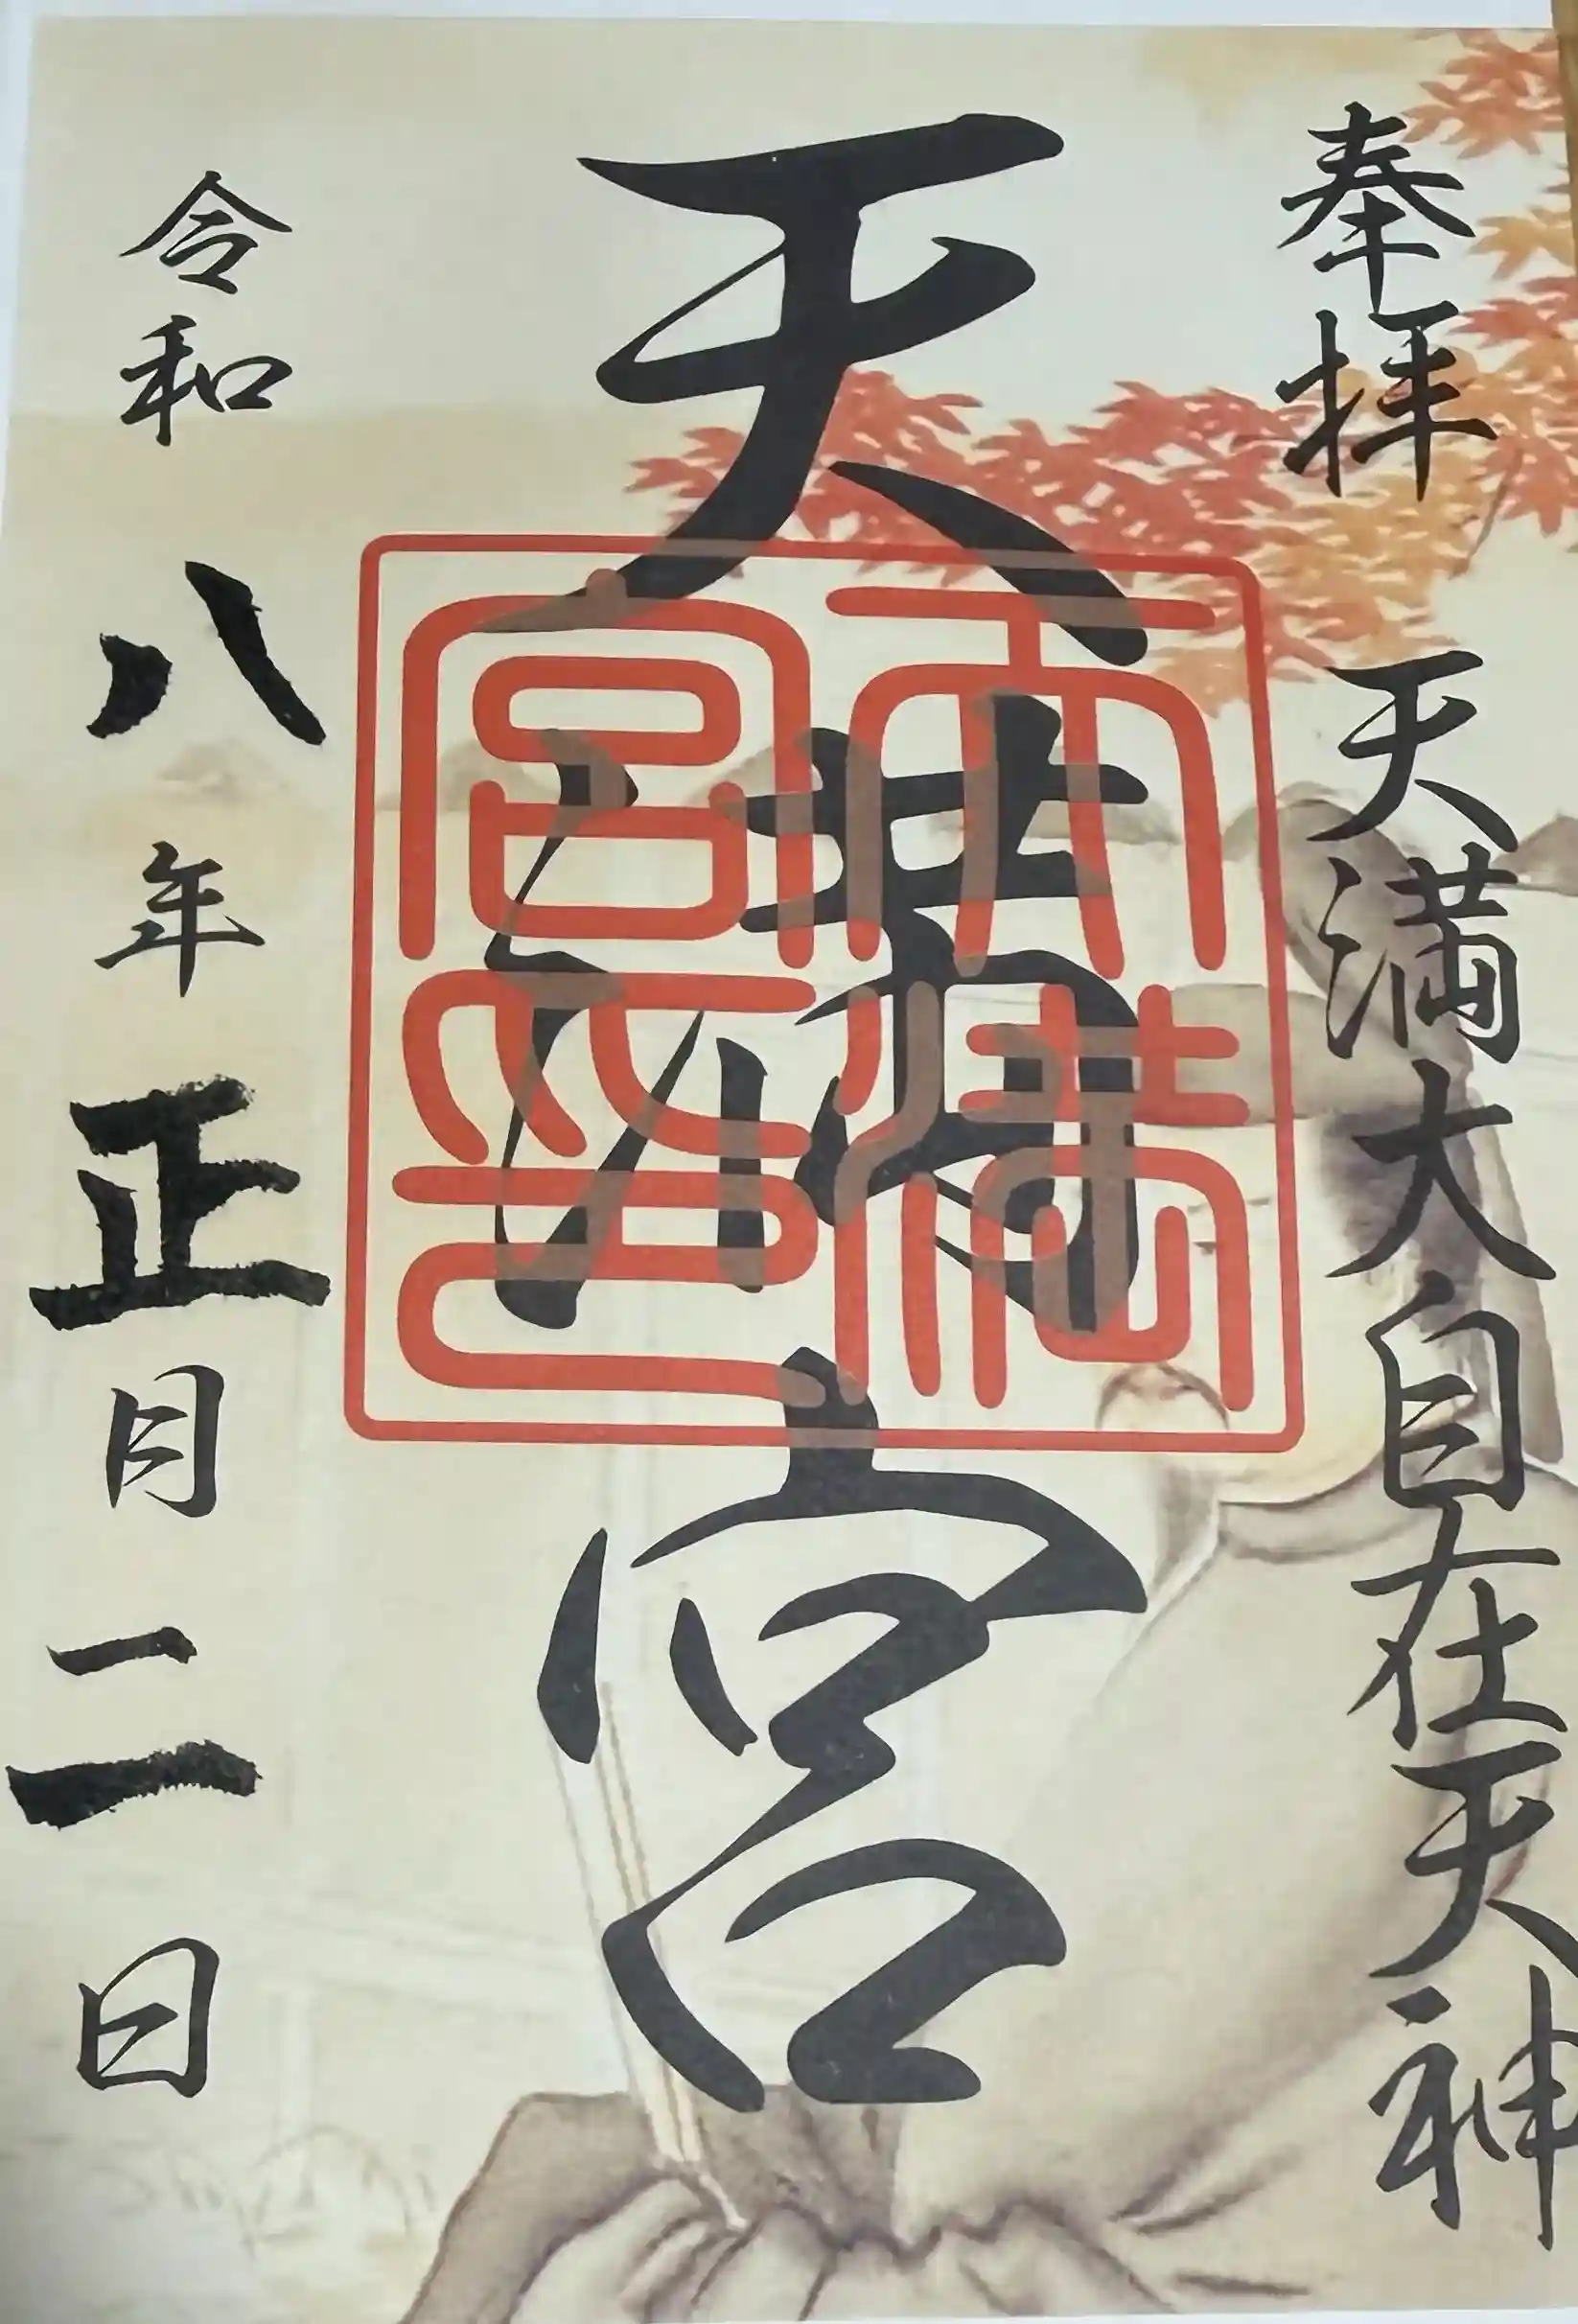 奉拝
天満大自在天神
天満宮
天満宮印
令和八年正月二日